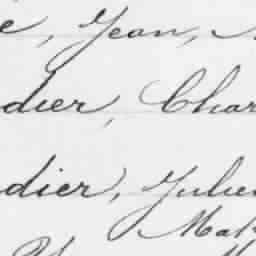 e, Jean,
dier, Char
dier, Julie
Mat